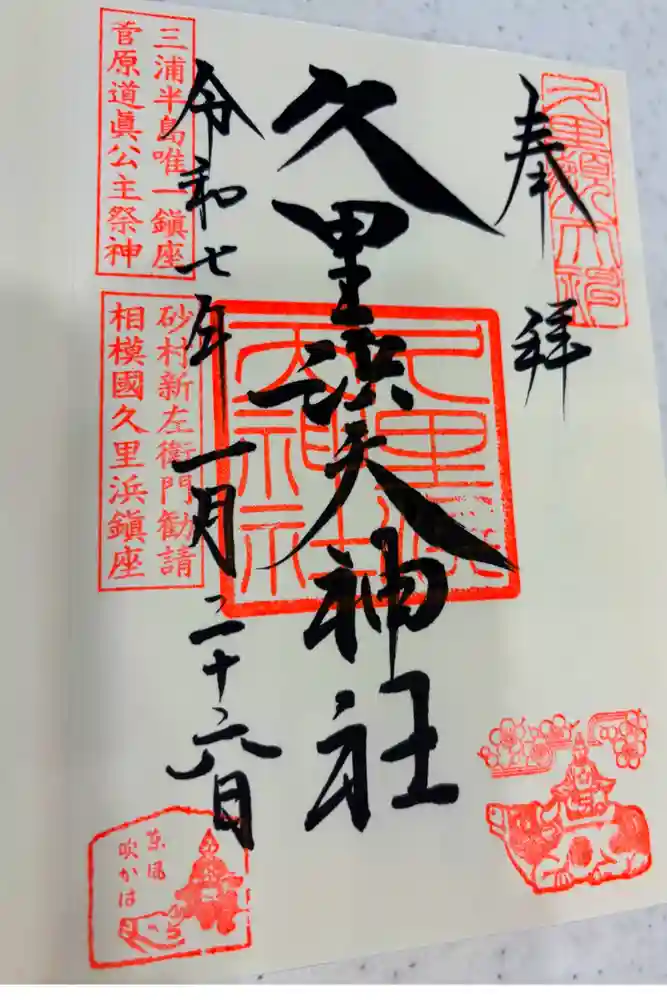 奉拝
久里浜天神社
令和七年一月二十六日
三浦半島唯一鎮座
菅原道眞公主祭神
砂村新左衛門勧請
相模國久里浜鎮座
東風
吹かは